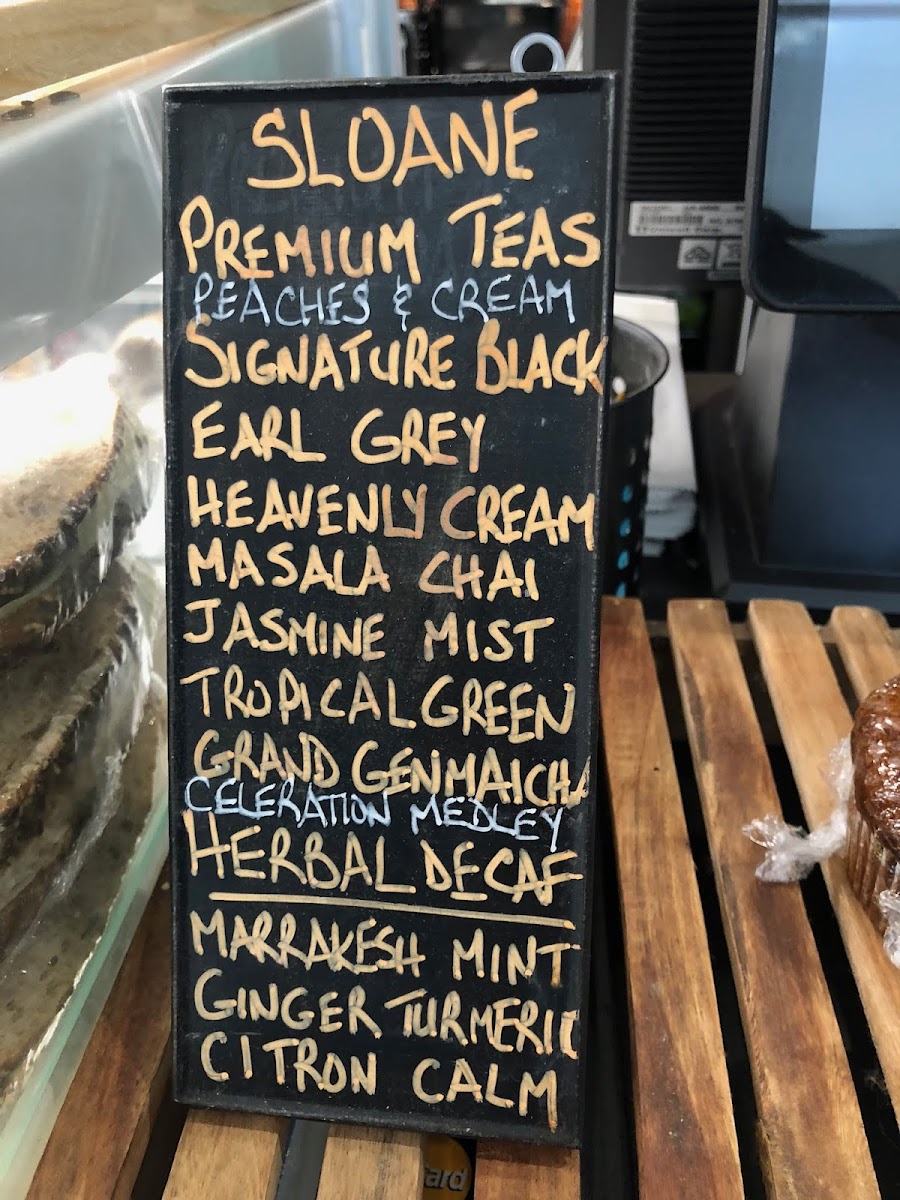 SLOANE
PREMIUM TEAS
PEACHES & CREAM
SIGNATURE BLACK
EARL GREY
HEAVENLY CREAM
MASALA CHAI
JASMINE MIST
TROPICAL GREEN
GRAND GENMAICHA
CELERATION MEDLEY
HERBAL DECAF
MARRAKESH MINT
GINGER TURMERIC
CITRON CALM